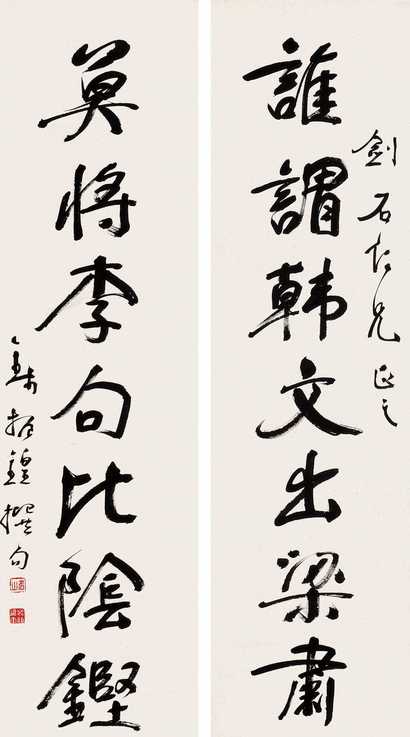 劍石仁兄正之
誰謂韩文出梁肅
莫將李句比陰鏗
錢振鍠撰句